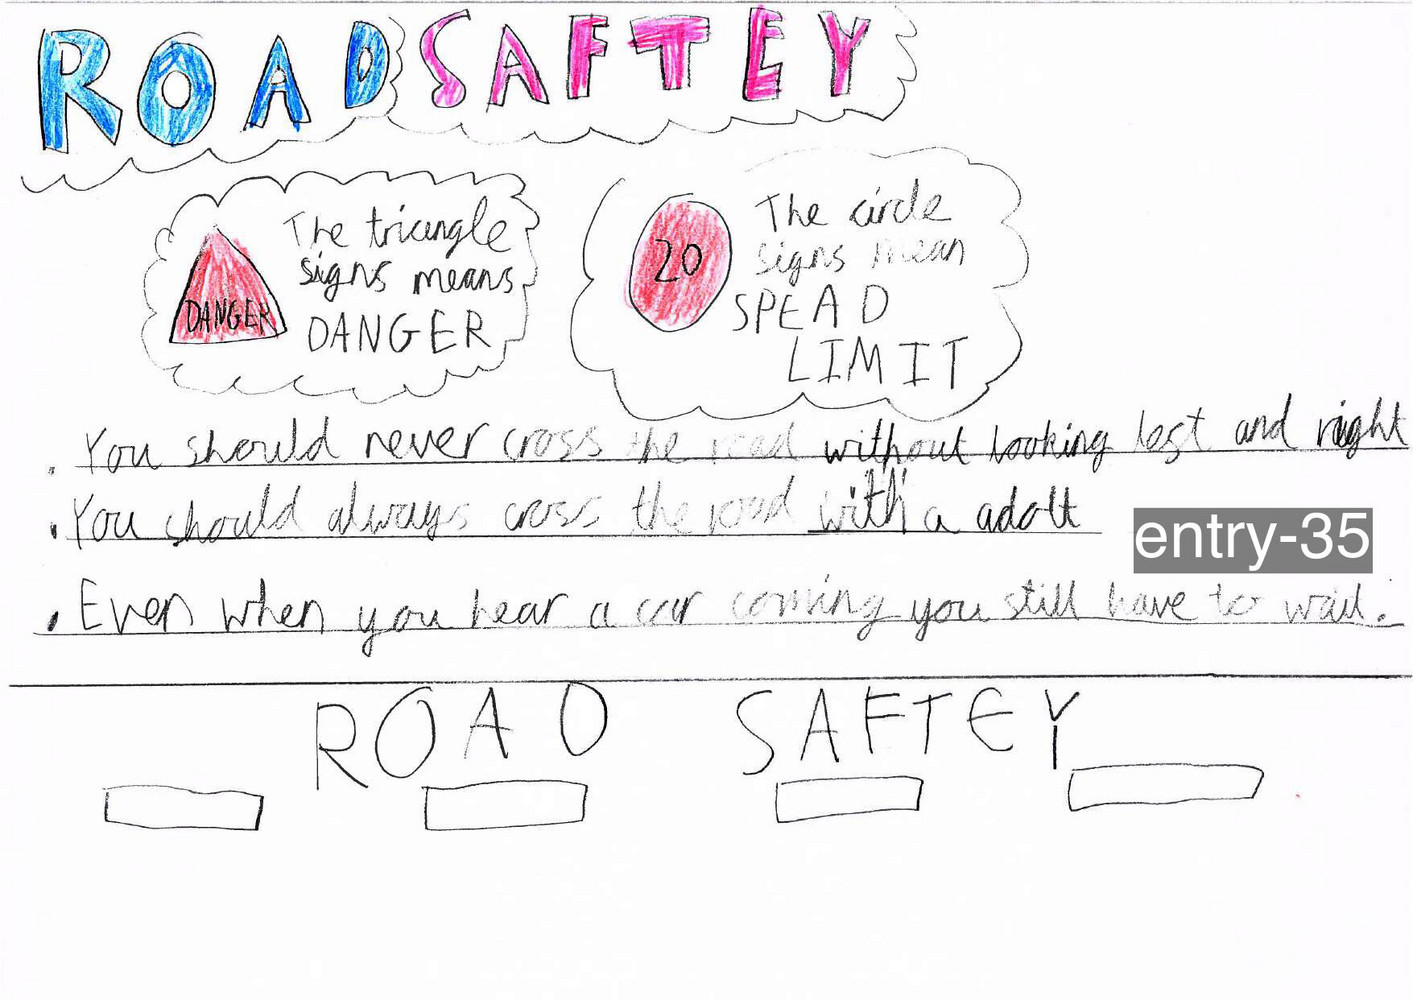 ROAD SAFTEY
The triangle
signs means
DANGER
DANGER
The circle
signs mean
SPEAD
LIMIT
20
. You should never cross the road without looking lest and right
. You should always cross the road with a adolt
. Even when you hear a car coming you still have to wait.
entry-35
ROAD SAFTEY